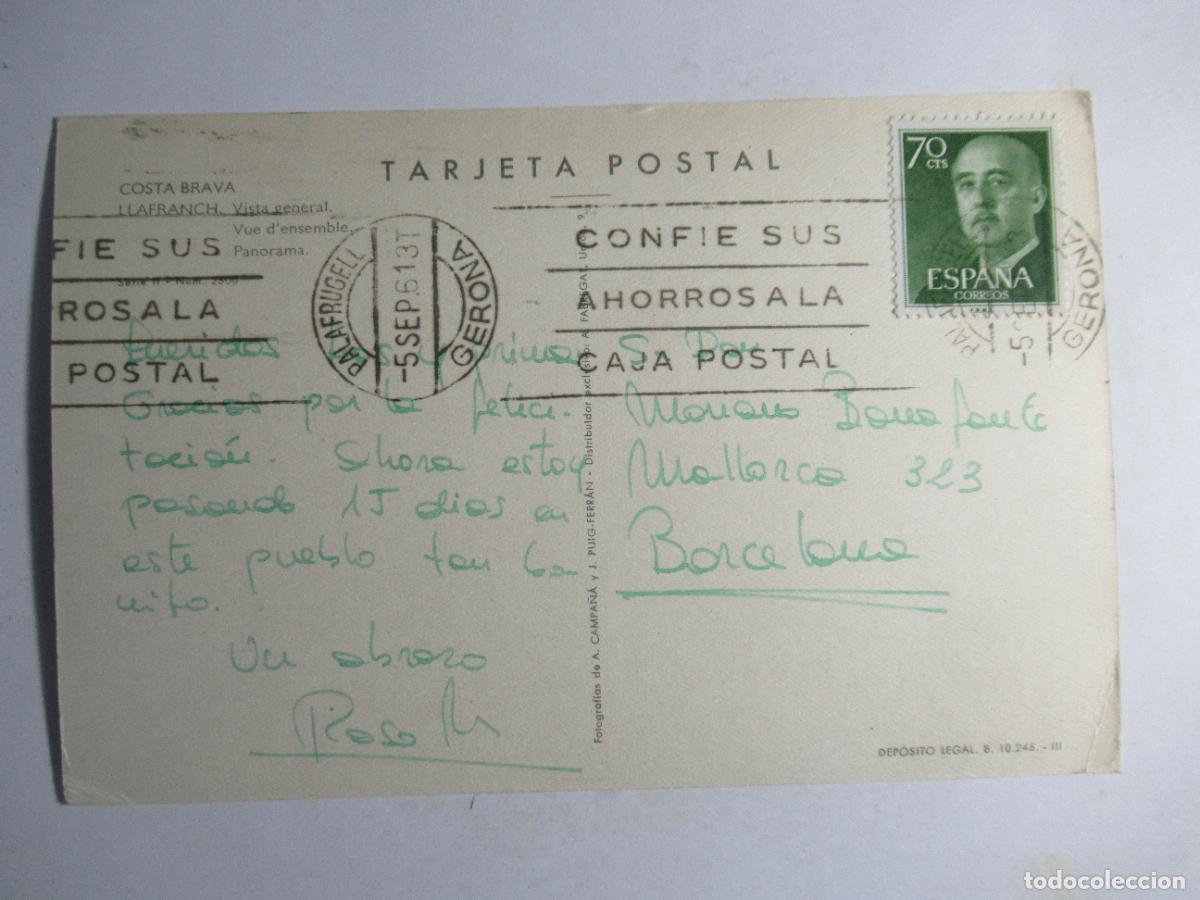 TARJETA POSTAL
COSTA BRAVA
LLAFRANCH. Vista general.
Vue d'ensemble.
Panorama.
Serie II - Núm. 2500
FIE SUS
ROSALA
POSTAL
PALAFRUGELL
-5 SEP. 61 13T
GERONA
CONFIE SUS
AHORROS A LA
CAJA POSTAL
70 CTS
ESPAÑA
CORREOS
-5 S
GERONA
Queridos primos
Gracias por la felici-
tación. Ahora estoy
pasando 15 dias en
este pueblo tan bo-
nito.
Un abrazo
Rosa M
S. Don
Mariano Bonafonte
Mallorca 323
Barcelona
Fotografías de A. CAMPAÑÁ y J. PUIG-FERRÁN - Distribuidor exclusivo: A. FABREGAT,
DEPÓSITO LEGAL. B. 10.245. - III
todocoleccion